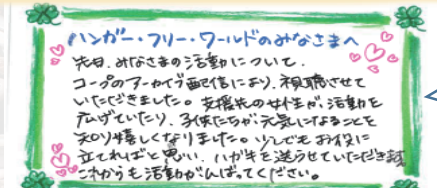 ハンガー・フリー・ワールドのみなさまへ
先日、みなさまの活動について、
コープのアーカイブ配信により、視聴させて
いただきました。支援先の女性が、活動を
広げていたり、子供たちが元気になることを
知り嬉しくなりました。少しでもお役に
立てればと思い、ハガキを送らせていただき
これからも活動がんばってください。